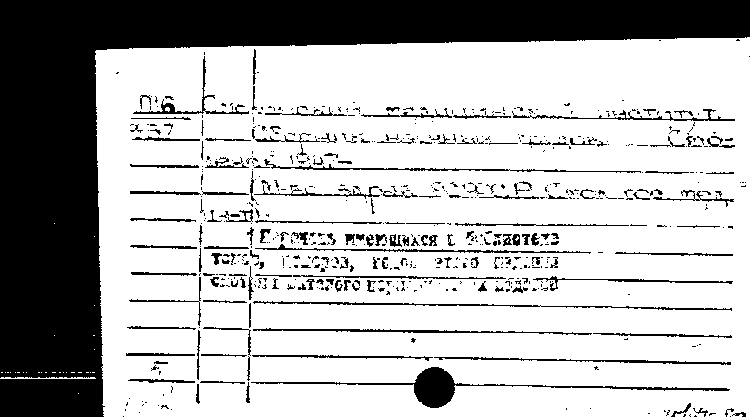 П16 Смоленский медицинский институт.
437 Сборник научных трудов. Смо-
ленск 1947-
М-во здрав. РСФСР. Смол. гос. мед.
ин-т.
Перечень имеющихся в библиотеке
томов, номеров, годов этого издания
смотри каталоге периодических изданий